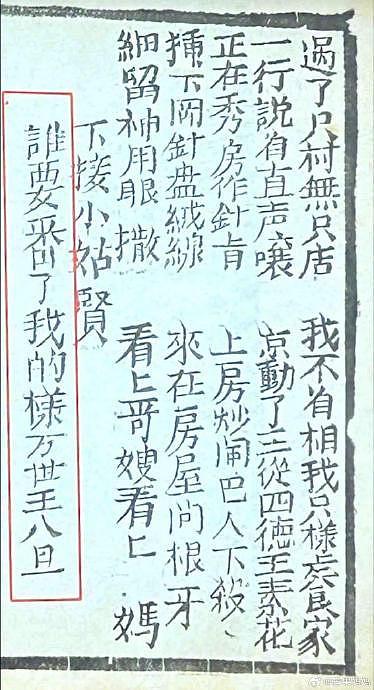 過了尸村無只店 我不自相我只樣忘食家
一行說自直声嚷 京動了三從四德王素花
正在秀房作針旨 上房炒鬧巴人下殺
下岡針盘絨線 來在房屋问根牙
細留神用眼撒 看〻哥嫂看〻媽
下接小姑賢
誰要番了我的樣万世王八旦